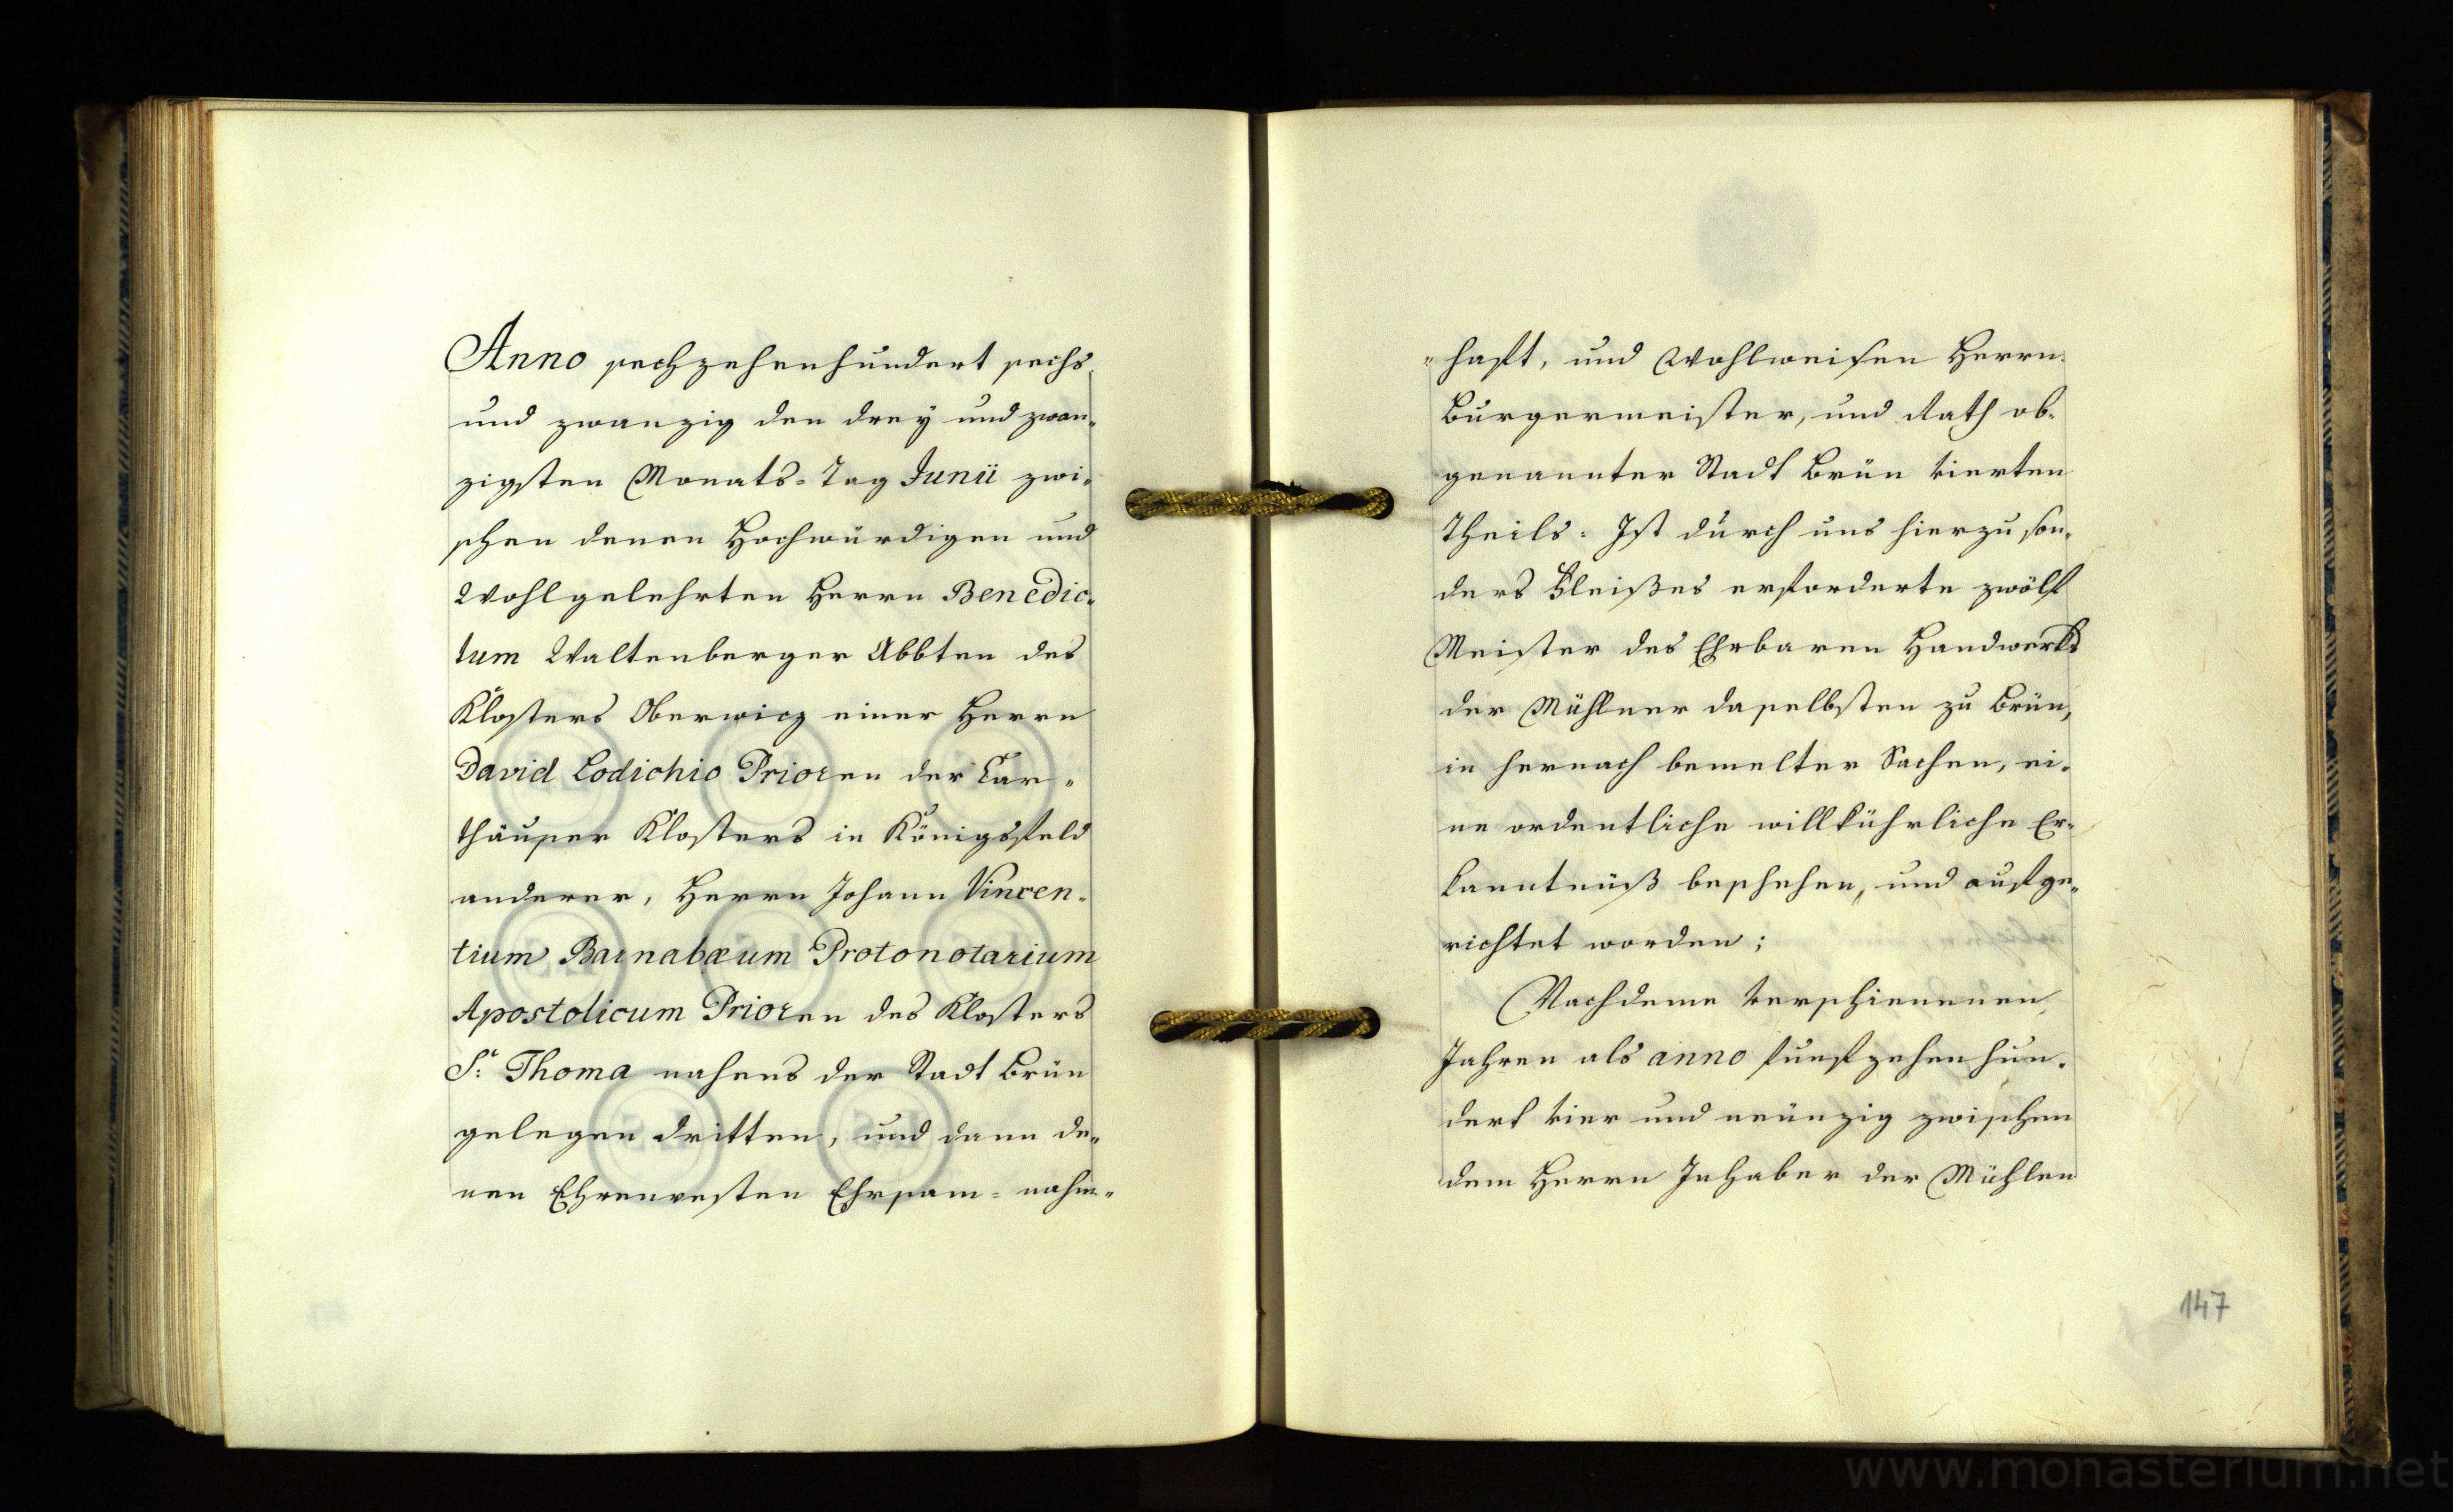 Anno sechzehenhundert sechs
und zwanzig den drey und zwan„
zigsten Monats=Tag Junii zwi„
schen denen Hochwürdigen und
Wohlgelehrten Herrn Benedic„
tum Waltenberger Abbten des
Klosters Oberwicz einer Herrn
David Lodichio Prioren der Car„
thäuser Klosters in Königsfeld
anderer, Herrn Johann Vincen„
tium Barnabæum Protonotarium
Apostolicum Prioren des Klosters
St: Thoma nahens der Stadt Brün
gelegen dritten, und dann de„
nen Ehrenvesten Ehrsam= nahm„
„haft, und Wohlweisen Herrn
Burgermeister, und Rath ob„
genannter Stadt Brün vierten
Theils: Ist durch uns hierzu son„
ders Fleißes erforderte zwölf
Meister des Ehrbaren Handwerks
der Mühlner daselbsten zu Brün,
in hernach bemelter Sachen, ei„
ne ordentliche willkührliche Er„
kanntnüß beschehen, und aufge„
richtet worden;
Nachdeme verschienenen
Jahren als anno funfzehenhun„
dert vier und neünzig zwischen
dem Herrn Inhaber der Mühlen
147
www.monasterium.net